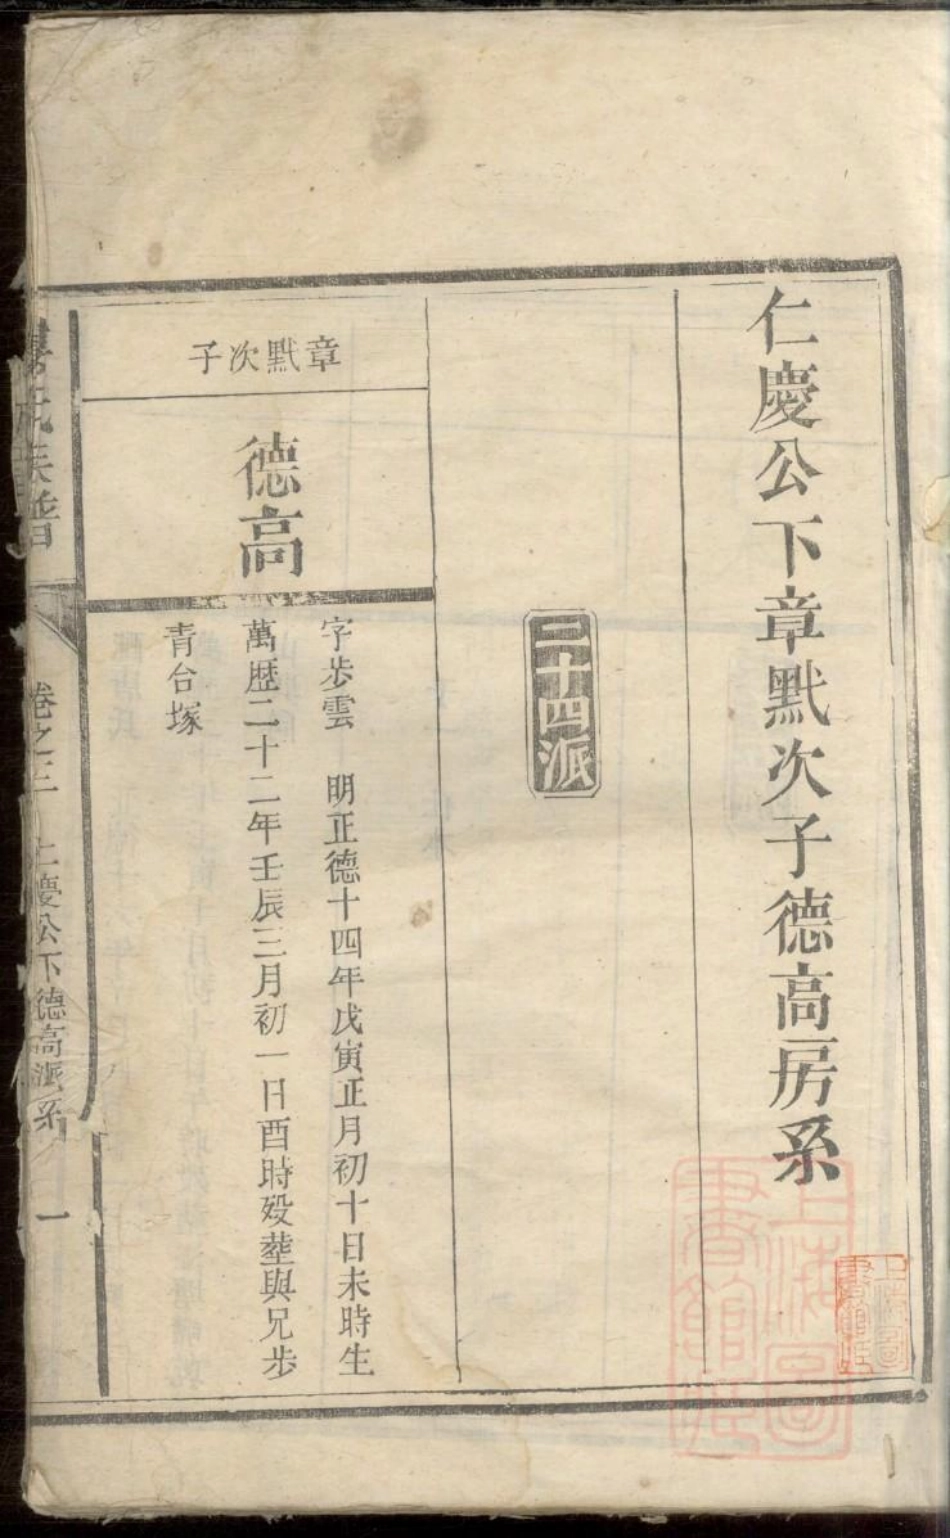 仁慶公下章默次子德高房系
二十四派
章默次子
德高
字步雲 明正德十四年戊寅正月初十日未時生
萬歴二十二年壬辰三月初一日酉時殁塟與兄步
青台塚
氏族譜
卷之三 仁慶公下德高派系 一
上海圖書館藏
上海圖書館藏